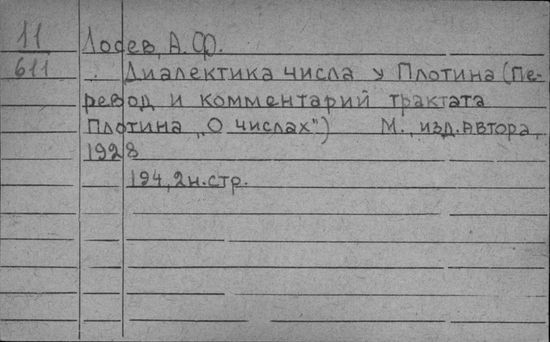 11
611
Лосев, А.Ф.
Диалектика числа у Плотина (Пе-
ревод и комментарий трактата
Плотина „О числах“) М., изд. автора,
1928
194, 2 н. стр.